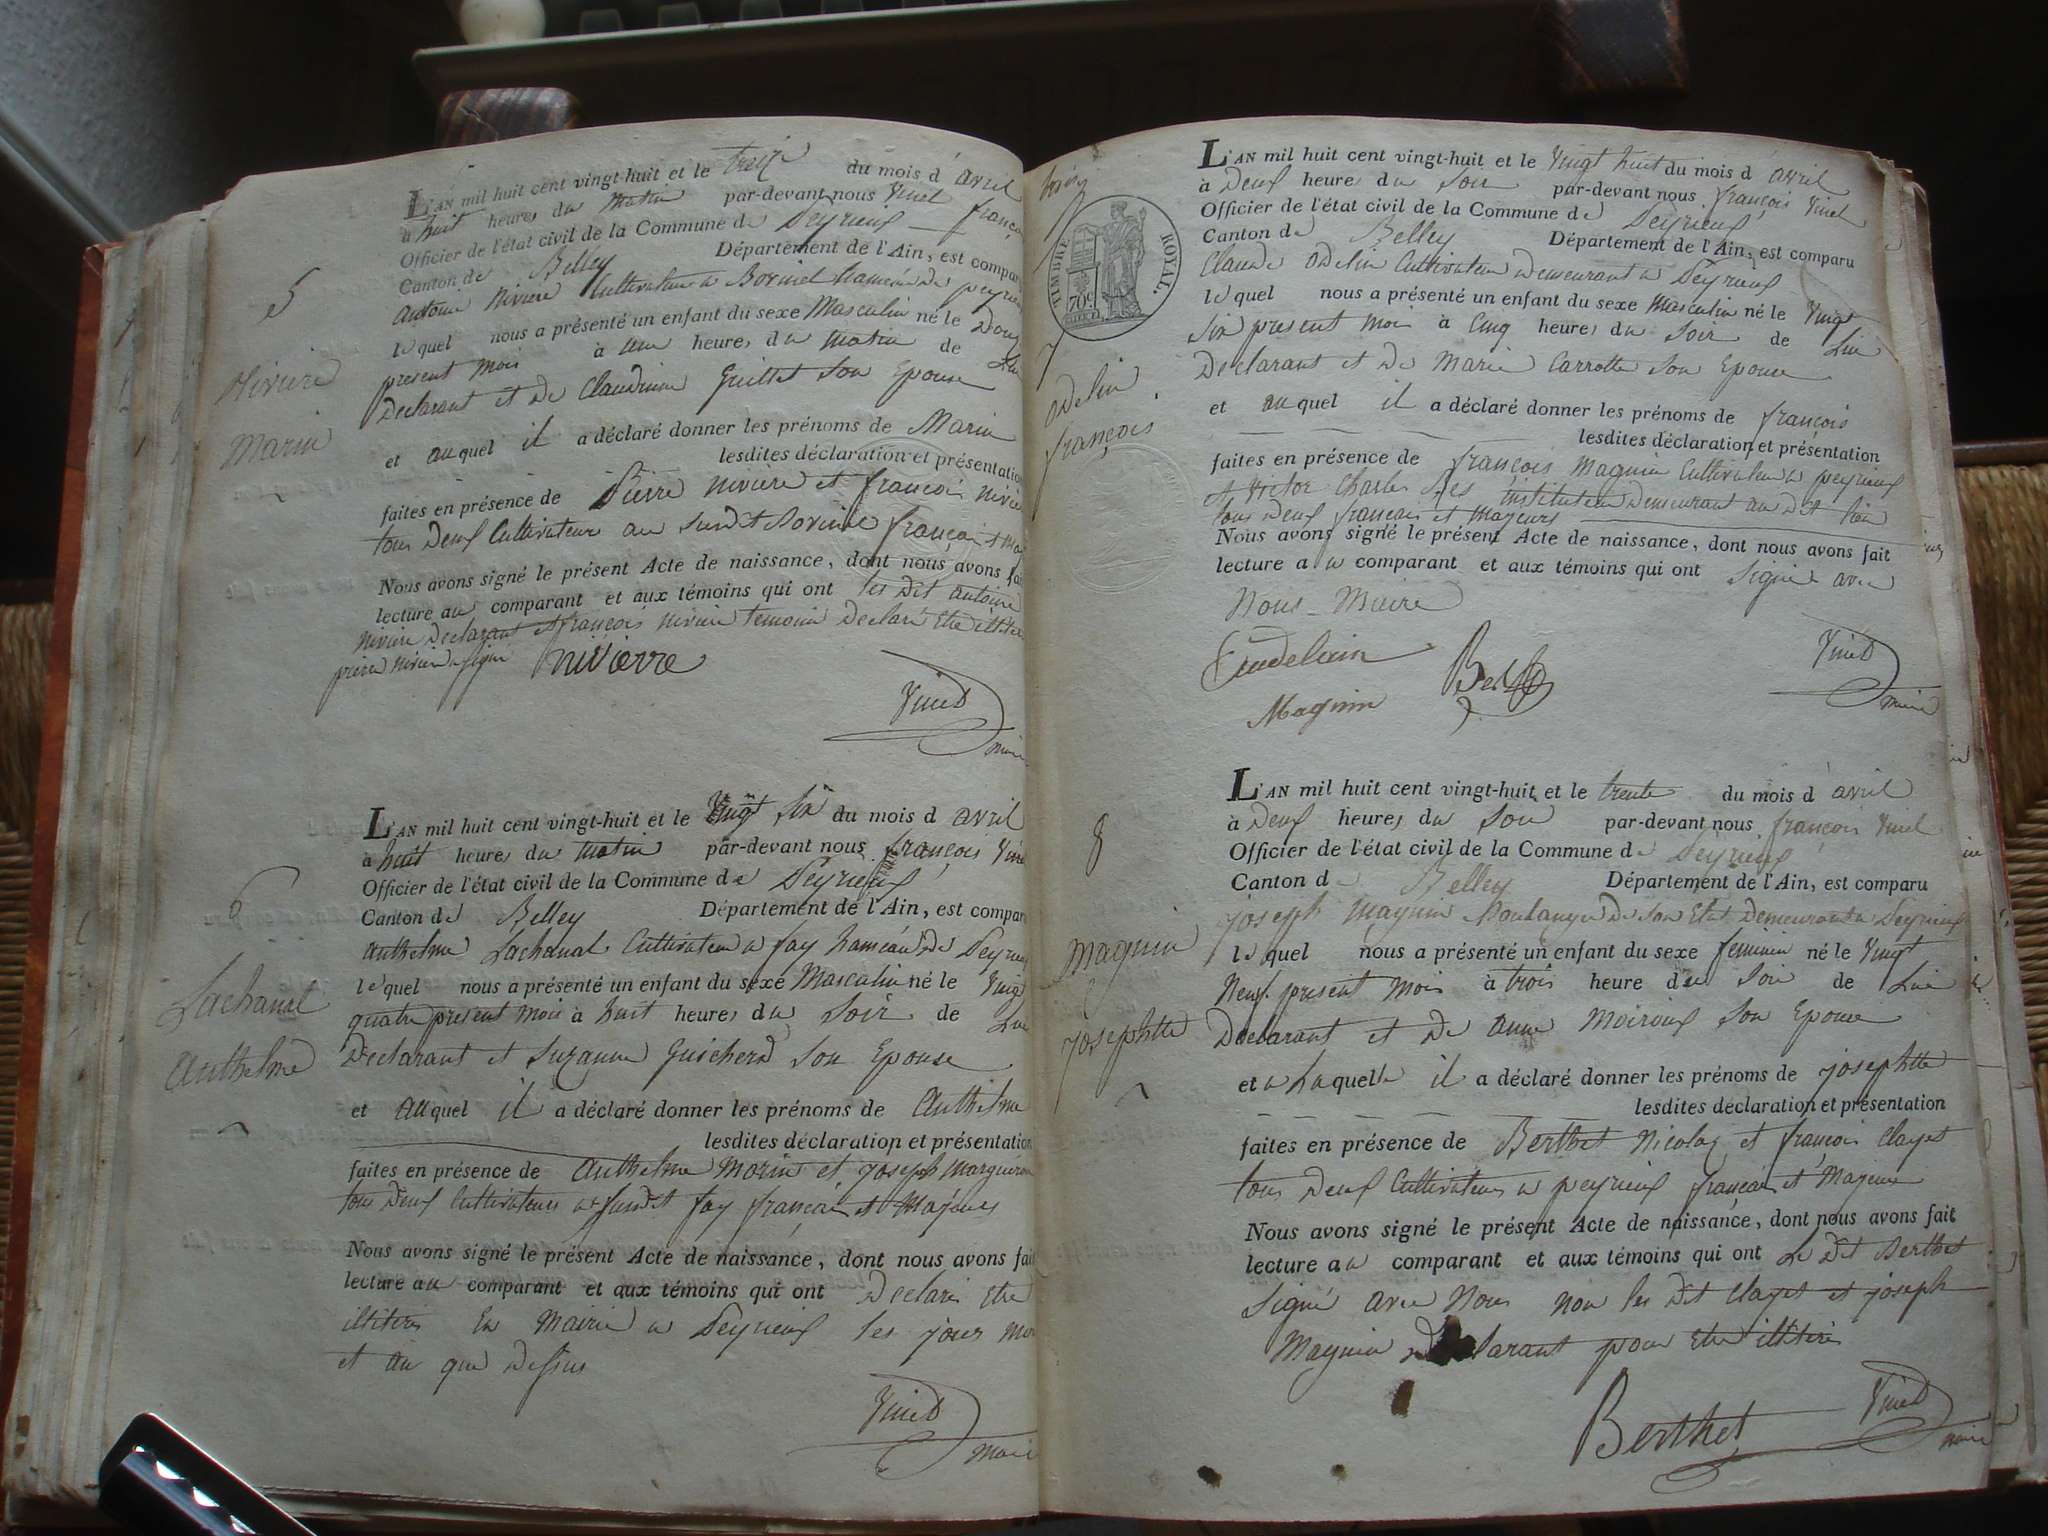 5
Niviere
Marin
L'AN mil huit cent vingt-huit et le treize du mois d avril
à huit heures du matin par-devant nous Vinet françois
Officier de l'état civil de la Commune de Peyrieux
Canton de Belley Département de l'Ain, est comparu
antoine Niviere Cultivateur a hameau de peyrieux
lequel nous a présenté un enfant du sexe Masculin né le Douze
présent mois à une heures du matin de Lui
Declarant et de Claudinne Guillet Son Epouse
et auquel il a déclaré donner les prénoms de Marin
lesdites déclaration et présentation
faites en présence de Pierre niviere et françois niviere
tous Deux Cultivateurs au susdit françois
Nous avons signé le présent Acte de naissance, dont nous avons fait
lecture au comparant et aux témoins qui ont les Dit antoine
niviere Declarant et françois niviere temoin Declaré Etre
pierre niviere a signé nivierre
Vinet
maire
6
Lachanal
Anthelme
L'AN mil huit cent vingt-huit et le Vingt Six du mois d avril
à huit heures du matin par-devant nous françois Vinet
Officier de l'état civil de la Commune de Peyrieux
Canton de Belley Département de l'Ain, est comparu
Anthelme Lachanal Cultivateur a fay hameau de Peyrieux
lequel nous a présenté un enfant du sexe Masculin né le Vingt
quatre present mois à huit heures du Soir de Lui
Declarant et Suzanne Guicherd Son Epouse
et auquel il a déclaré donner les prénoms de Anthelme
lesdites déclaration et présentation
faites en présence de Anthelme Morin et joseph Marguiron
tous Deux Cultivateurs au susdit fay français et Majeurs
Nous avons signé le présent Acte de naissance, dont nous avons fait
lecture au comparant et aux témoins qui ont Declaré Etre
illitérés En Mairie a Peyrieux les jour mois
et an que Dessus
Vinet
maire
TIMBRE ROYAL.
70c
7
Odelin
françois
L'AN mil huit cent vingt-huit et le Vingt huit du mois d avril
à Deux heures du Soir par-devant nous françois Vinet
Officier de l'état civil de la Commune de Peyrieux
Canton de Belley Département de l'Ain, est comparu
Claude Odelin Cultivateur Demeurant a Peyrieux
lequel nous a présenté un enfant du sexe Masculin né le Vingt
Six present mois à Cinq heures du Soir de Lui
Declarant et de Marie Carrotte Son Epouse
et auquel il a déclaré donner les prénoms de françois
lesdites déclaration et présentation
faites en présence de françois Magnin Cultivateur a peyrieux
et Victor Charles instituteur Demeurant au Dit lieu
tous Deux francois et majeurs
Nous avons signé le présent Acte de naissance, dont nous avons fait
lecture au comparant et aux témoins qui ont Signé avec
Nous Maire
Magnin
Vinet
maire
8
Magnin
josephtte
L'AN mil huit cent vingt-huit et le trente du mois d avril
à Deux heures du Soir par-devant nous françois Vinet
Officier de l'état civil de la Commune de Peyrieux
Canton de Belley Département de l'Ain, est comparu
joseph Magnin Boulanger de Son Etat Demeurant a Peyrieux
lequel nous a présenté un enfant du sexe feminin né le Vingt
Neuf present mois à trois heure du Soir de Lui
Declarant et de anne Moiroux Son Epouse
et a Laquelle il a déclaré donner les prénoms de josephtte
lesdites déclaration et présentation
faites en présence de Berthet Nicolas et françois Clayet
tous Deux Cultivateurs a peyrieux français et Majeurs
Nous avons signé le présent Acte de naissance, dont nous avons fait
lecture au comparant et aux témoins qui ont Le Dit Berthet
Signé avec Nous non les Dit Clayet et joseph
Magnin Declarant pour Etre illitéré
Berthet
Vinet
maire